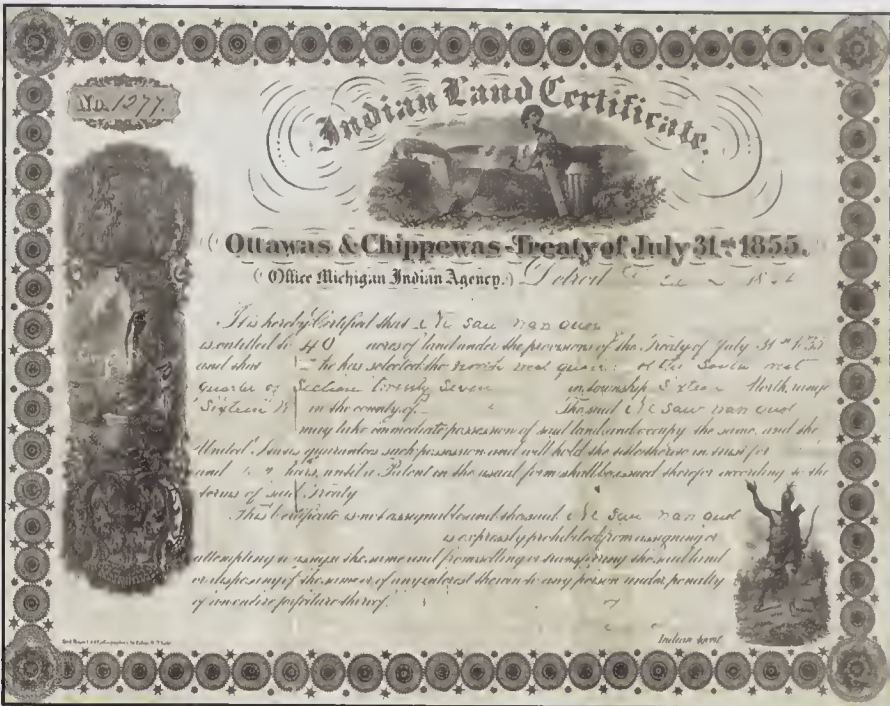 No. 1277.
Indian Land Certificate.
Ottawas & Chippewas Treaty of July 31st 1855.
(Office Michigan Indian Agency.) Detroit 18
It is hereby Certified that Ne saw nan quot
is entitled to 40 acres of land under the provisions of the Treaty of July 31st 1855
and that he has selected the North west quarter of the South west
quarter of Section Twenty Seven in township Sixteen North, range
Sixteen W in the county of The said Ne saw nan quot
may take immediate possession of said land and occupy the same, and the
United States guarantees such possession and will hold the title thereto in trust for
and heirs, until a Patent in the usual form shall be issued therefor according to the
terms of said Treaty
This Certificate is not assignable and the said Ne saw nan quot
is expressly prohibited from assigning or
attempting to assign the same and from selling or transferring the said land
or disposing of the same or of any interest therein to any person under penalty
of an entire forfeiture thereof.
Indian Agent